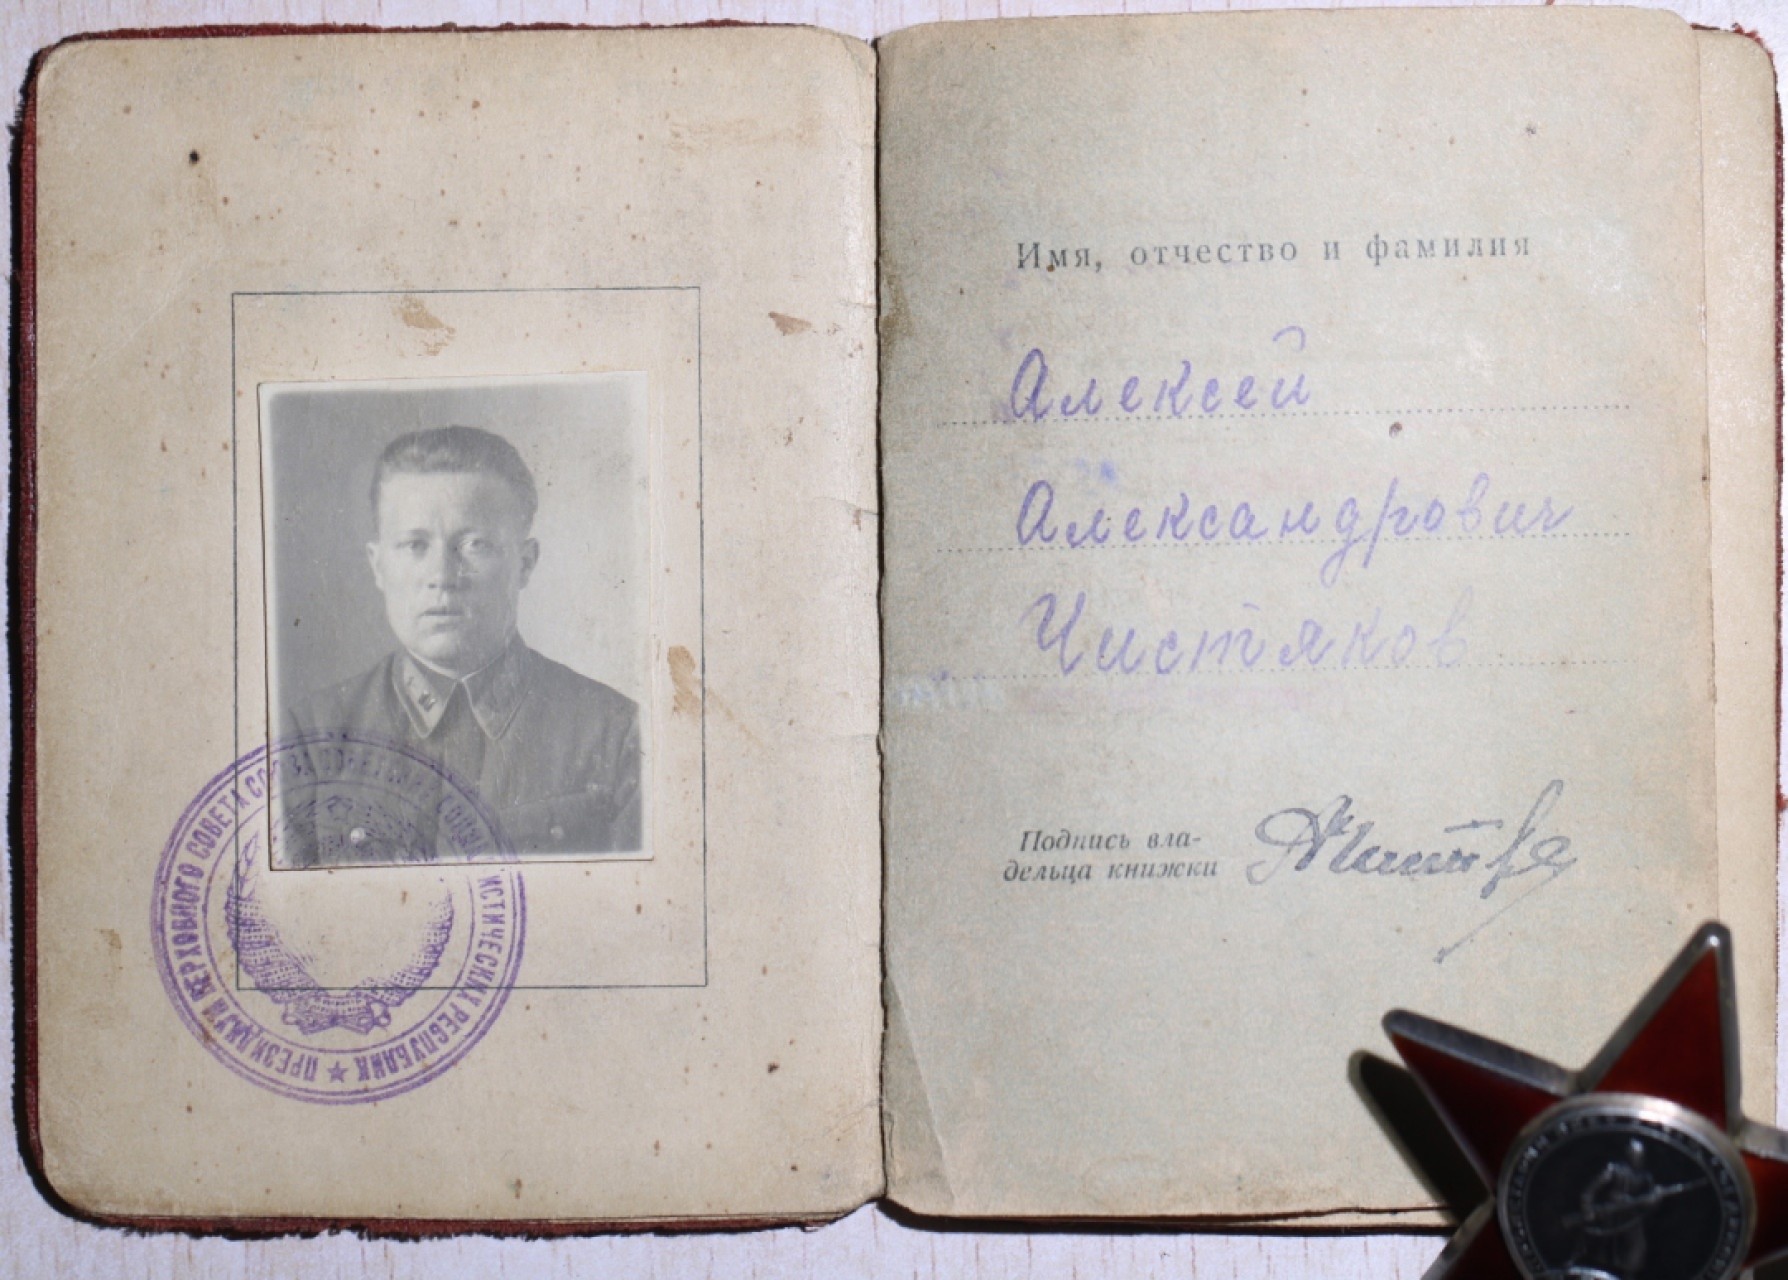 ПРЕЗИДИУМ ВЕРХОВНОГО СОВЕТА СОЮЗА СОВЕТСКИХ СОЦИАЛИСТИЧЕСКИХ РЕСПУБЛИК
Имя, отчество и фамилия
Алексей
Александрович
Чистяков
Подпись вла-
дельца книжки